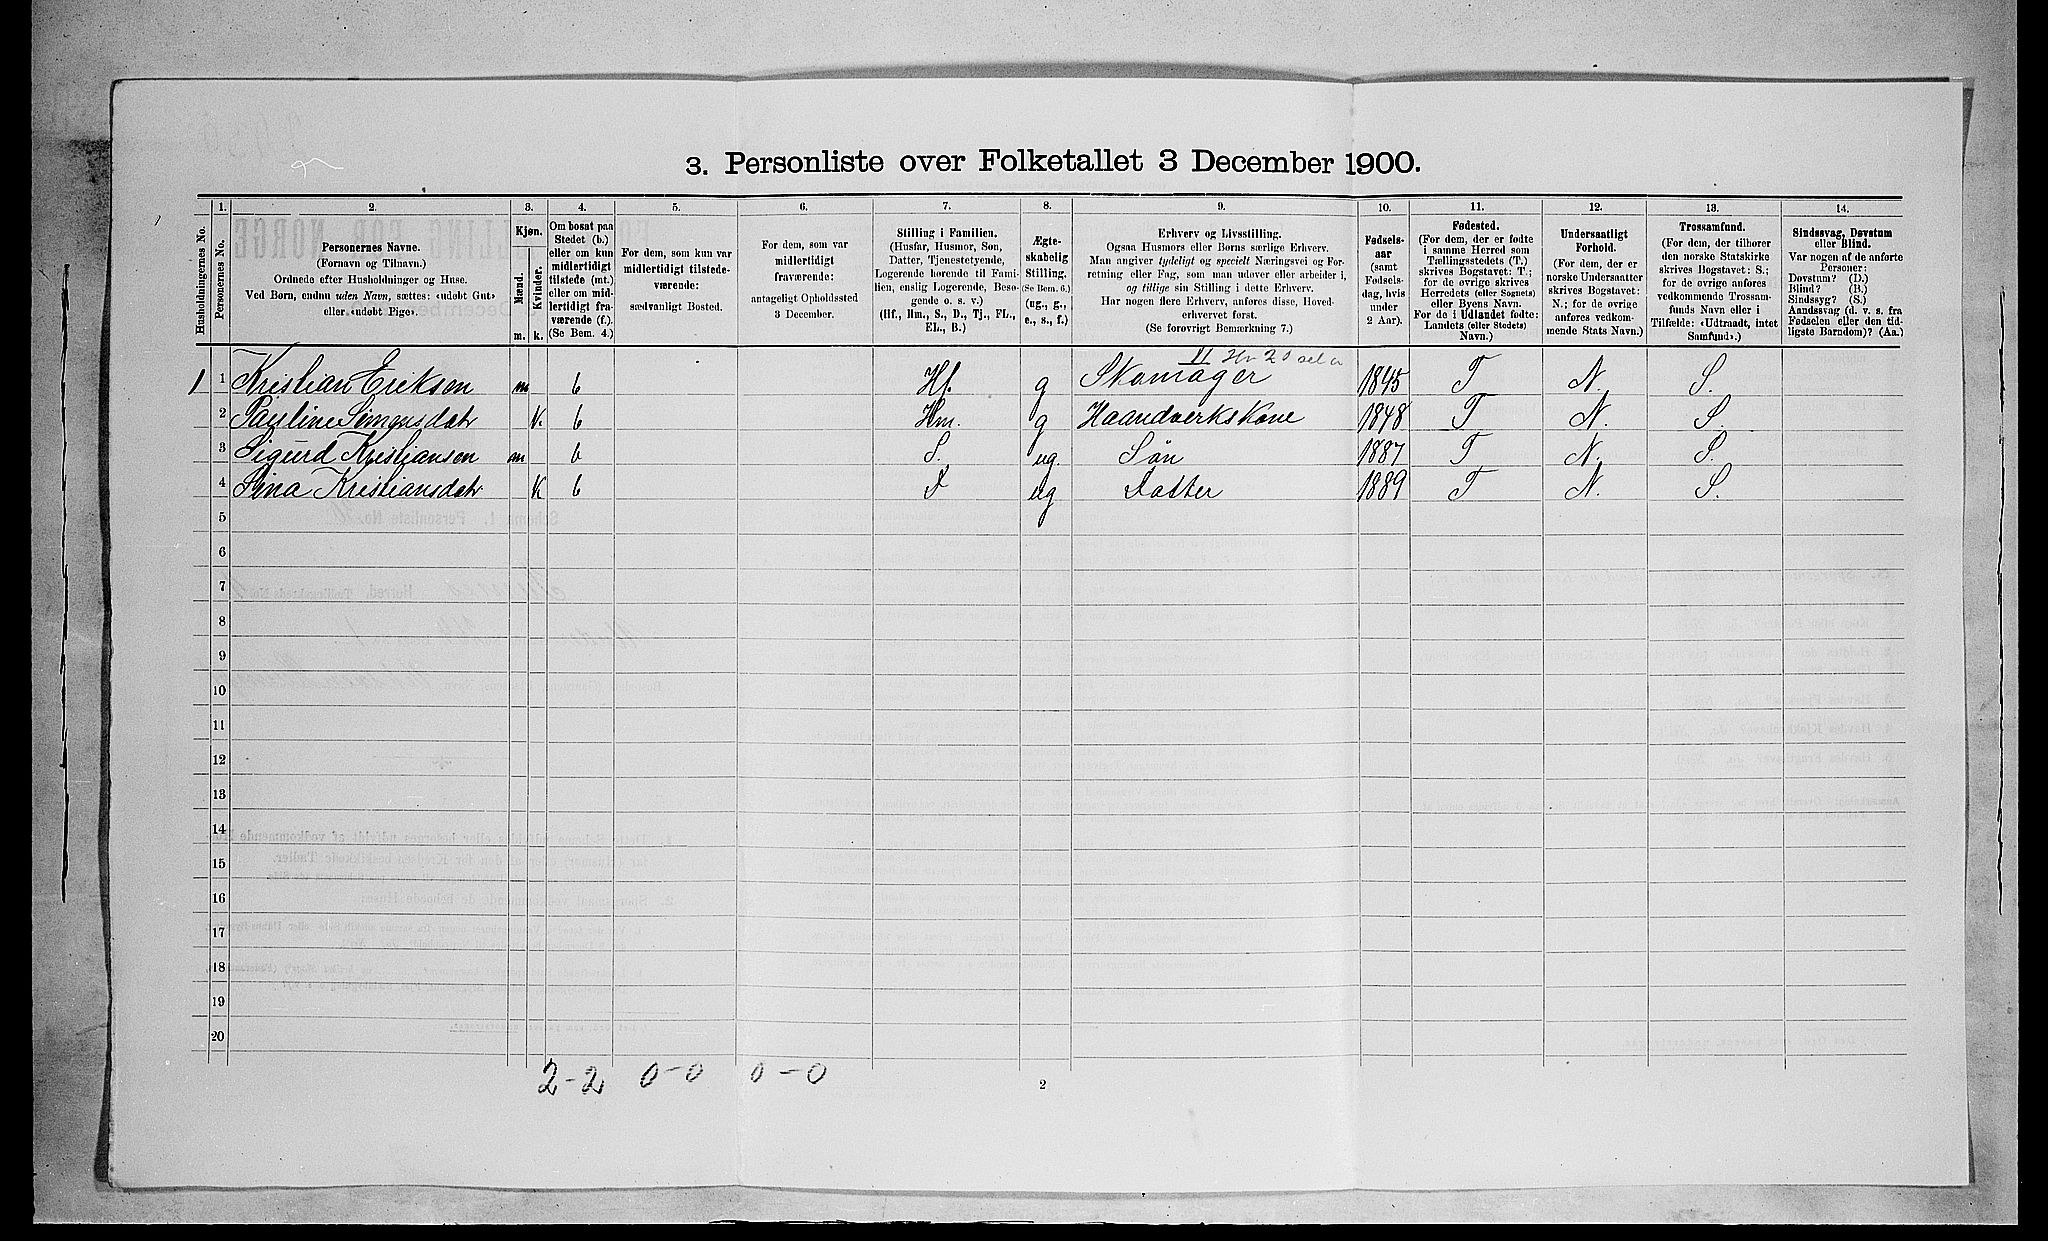 3. Personliste over Folketallet 3 December 1900.
1. 2. 3. 4. 5. 6. 7. 8. 9. 10. 11. 12. 13. 14.
Husholdningernes No.
Personernes No.
Personernes Navne.
(Fornavn og Tilnavn.)
Ordnede efter Husholdninger og Huse.
Ved Børn, endnu uden Navn, sættes: «udøbt Gut»
eller «udøbt Pige».
Kjøn.
Mænd.
Kvinder.
m. k.
Om bosat paa
Stedet (b.)
eller om kun
midlertidigt
tilstede (mt.)
eller om mid-
lertidigt fra-
værende (f.).
(Se Bem. 4.)
For dem, som kun var
midlertidigt tilstede-
værende:
sædvanligt Bosted.
For dem, som var
midlertidigt
fraværende:
antageligt Opholdssted
3 December.
Stilling i Familien.
(Husfar, Husmor, Søn,
Datter, Tjenestetyende,
Logerende hørende til Fami-
lien, enslig Logerende, Besø-
gende o. s. v.)
(Hf., Hm., S., D., Tj., FL.,
EL., B.)
Ægte-
skabelig
Stilling.
(Se Bem. 6.)
(ug., g.,
e., s., f.)
Erhverv og Livsstilling.
Ogsaa Husmors eller Børns særlige Erhverv.
Man angiver tydeligt og specielt Næringsvei og For-
retning eller Fag, som man udøver eller arbeider i,
og tillige sin Stilling i dette Erhverv.
Har nogen flere Erhverv, anføres disse, Hoved-
erhvervet først.
(Se forøvrigt Bemærkning 7.)
Fødsels-
aar
(samt
Fødsels-
dag, hvis
under
2 Aar).
Fødested.
(For dem, der er fødte
i samme Herred som
Tællingsstedets (T.)
skrives Bogstavet: T.;
for de øvrige skrives
Herredets (eller Sognets)
eller Byens Navn.
For de i Udlandet fødte:
Landets (eller Stedets)
Navn.)
Undersaatligt
Forhold.
(For dem, der er
norske Undersaatter
skrives Bogstavet:
N.; for de øvrige
anføres vedkom-
mende Stats Navn.)
Trossamfund.
(For dem, der tilhører
den norske Statskirke
skrives Bogstavet: S.;
for de øvrige anføres
vedkommende Trossam-
funds Navn eller i
Tilfælde: «Udtraadt, intet
Samfund».)
Sindssvag, Døvstum
eller Blind.
Var nogen af de anførte
Personer:
Døvstum? (D.)
Blind? (B.)
Sindssyg? (S.)
Aandssvag (d. v. s. fra
Fødselen eller den tid-
ligste Barndom)? (Aa.)
1 1 Kristian Eriksen m b Hf. g Skomager 1845 T N. S.
2 Pauline Simensdatr K. b Hm. g Haandverkskone 1848 T N. S.
3 Sigurd Kristiansen m b S. ug. Søn 1887 T N. S.
4 Sina Kristiansdatr K b D ug Datter 1889 T N. S.
5
6
7
8
9
10
11
12
13
14
15
16
17
18
19
20
2-2 0-0 0-0
2